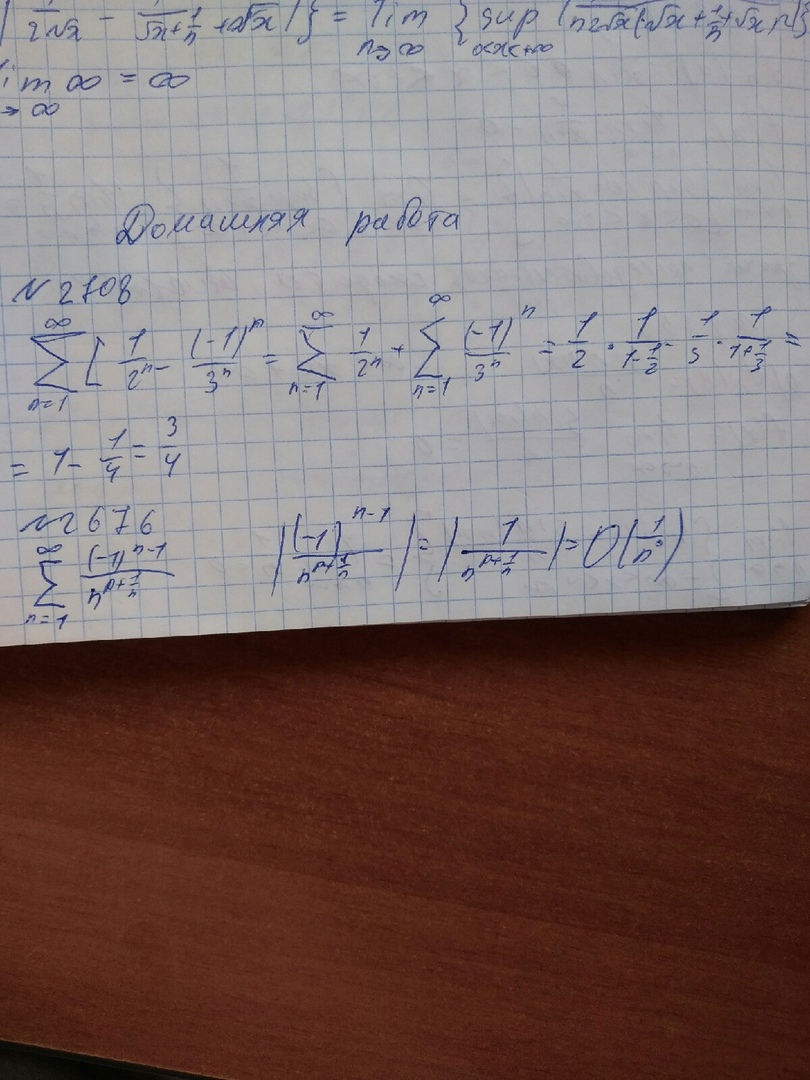 | 1/(2√x) - 1/(√x+1/n + √x) |} = lim n→∞ { sup 0<x<+∞
lim ∞ = ∞
→ ∞
Домашняя работа
N 2708
∞∑n=1 [ 1/2^n - (-1)^n/3^n = ∞∑n=1 1/2^n + ∞∑n=1 (-1)^n/3^n = 1/2 · 1/(1-1/2) - 1/3 · 1/(1+1/3) =
= 1 - 1/4 = 3/4
N 2676
∞∑n=1 (-1)^(n-1)/n^(p+1/n) |(-1)^(n-1)/n^(p+1/n)| = |1/n^(p+1/n)| = O(1/n^p)